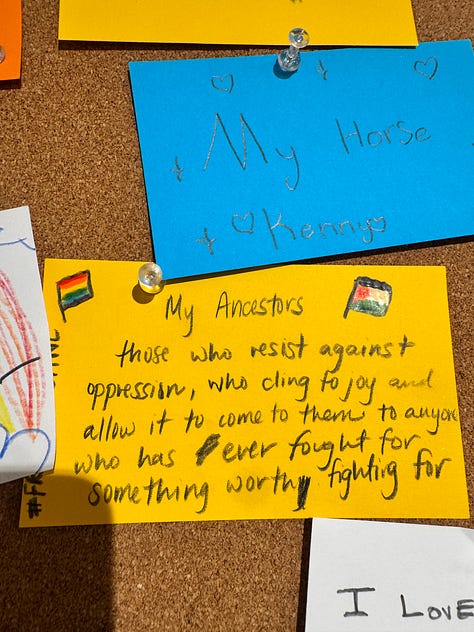 My Horse
Kenny
My Ancestors
those who resist against
oppression, who cling to joy and
allow it to come to them to anyone
who has ever fought for
something worthy fighting for
I LOVE